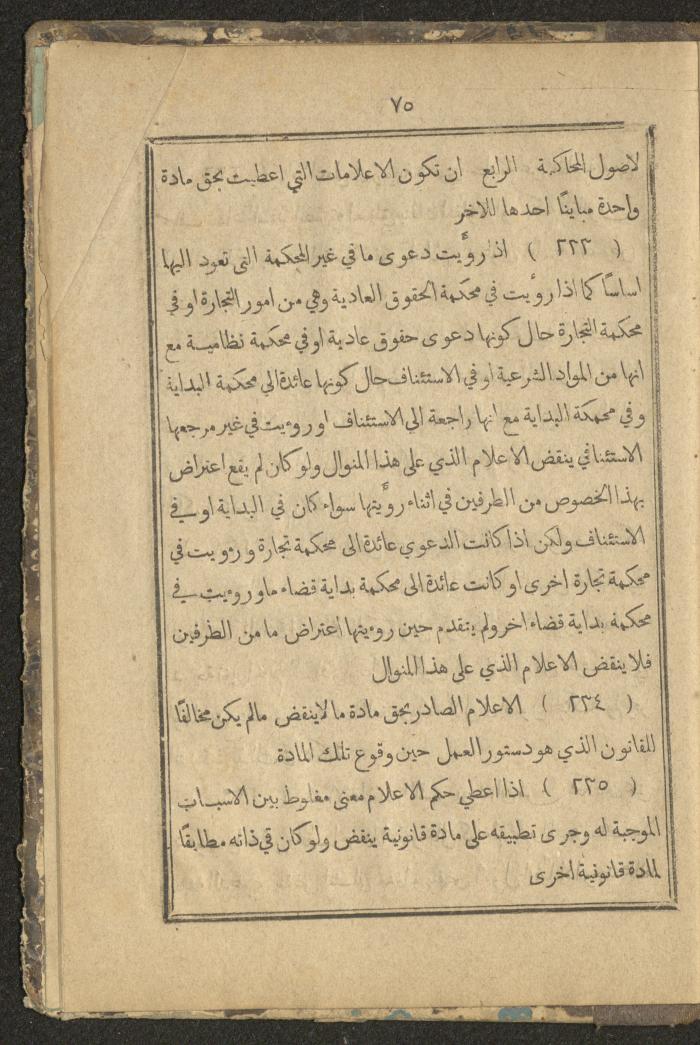 ٧٥
لاصول المحاكمة الرابع ان تكون الاعلامات التي اعطيت بحق مادة
واحدة مباينًا احدها للاخر
( ٢٣٣ ) اذا روٴيت دعوى ما في غير المحكمة التي تعود اليها
اساسًا كما اذا روٴيت في محكمة الحقوق العادية وهي من امور التجارة او في
محكمة التجارة حال كونها دعوى حقوق عادية او في محكمة نظامية مع
انها من المواد الشرعية او في الاستئناف حال كونها عائدة الى محكمة البداية
وفي محمكة البداية مع انها راجعة الى الاستئناف او روءيت في غير مرجعها
الاستئنافي ينقض الاعلام الذي على هذا المنوال ولو كان لم يقع اعتراض
بهذا الخصوص من الطرفين في اثناء روٴيتها سواء كان في البداية او في
الاستئناف ولكن اذا كانت الدعوي عائدة الى محكمة تجارة وروءيت في
محكمة تجارة اخرى او كانت عائدة الى محكمة بداية قضاء ما وروءيت في
محكمة بداية قضاء اخر ولم يتقدم حين روءيتها اعتراض ما من الطرفين
فلا ينقض الاعلام الذي على هذا المنوال
( ٢٣٤ ) الاعلام الصادر بحق مادة ما لا ينقض مالم يكن مخالفًا
للقانون الذي هو دستور العمل حين وقوع تلك المادة
( ٢٣٥ ) اذا اعطي حكم الاعلام معنى مغلوط بين الاسباب
الموجبة له وجرى تطبيقه على مادة قانونية ينقض ولو كان في ذاته مطابقًا
لمادة قانونية اخرى